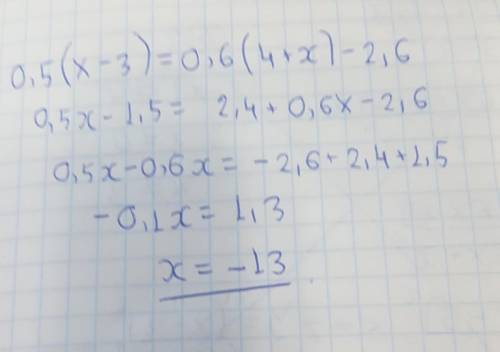 0,5(x-3)=0,6(4+x)-2,6
0,5x-1,5= 2,4+0,6x-2,6
0,5x-0,6x=-2,6+2,4+1,5
-0,1x=1,3
x=-13